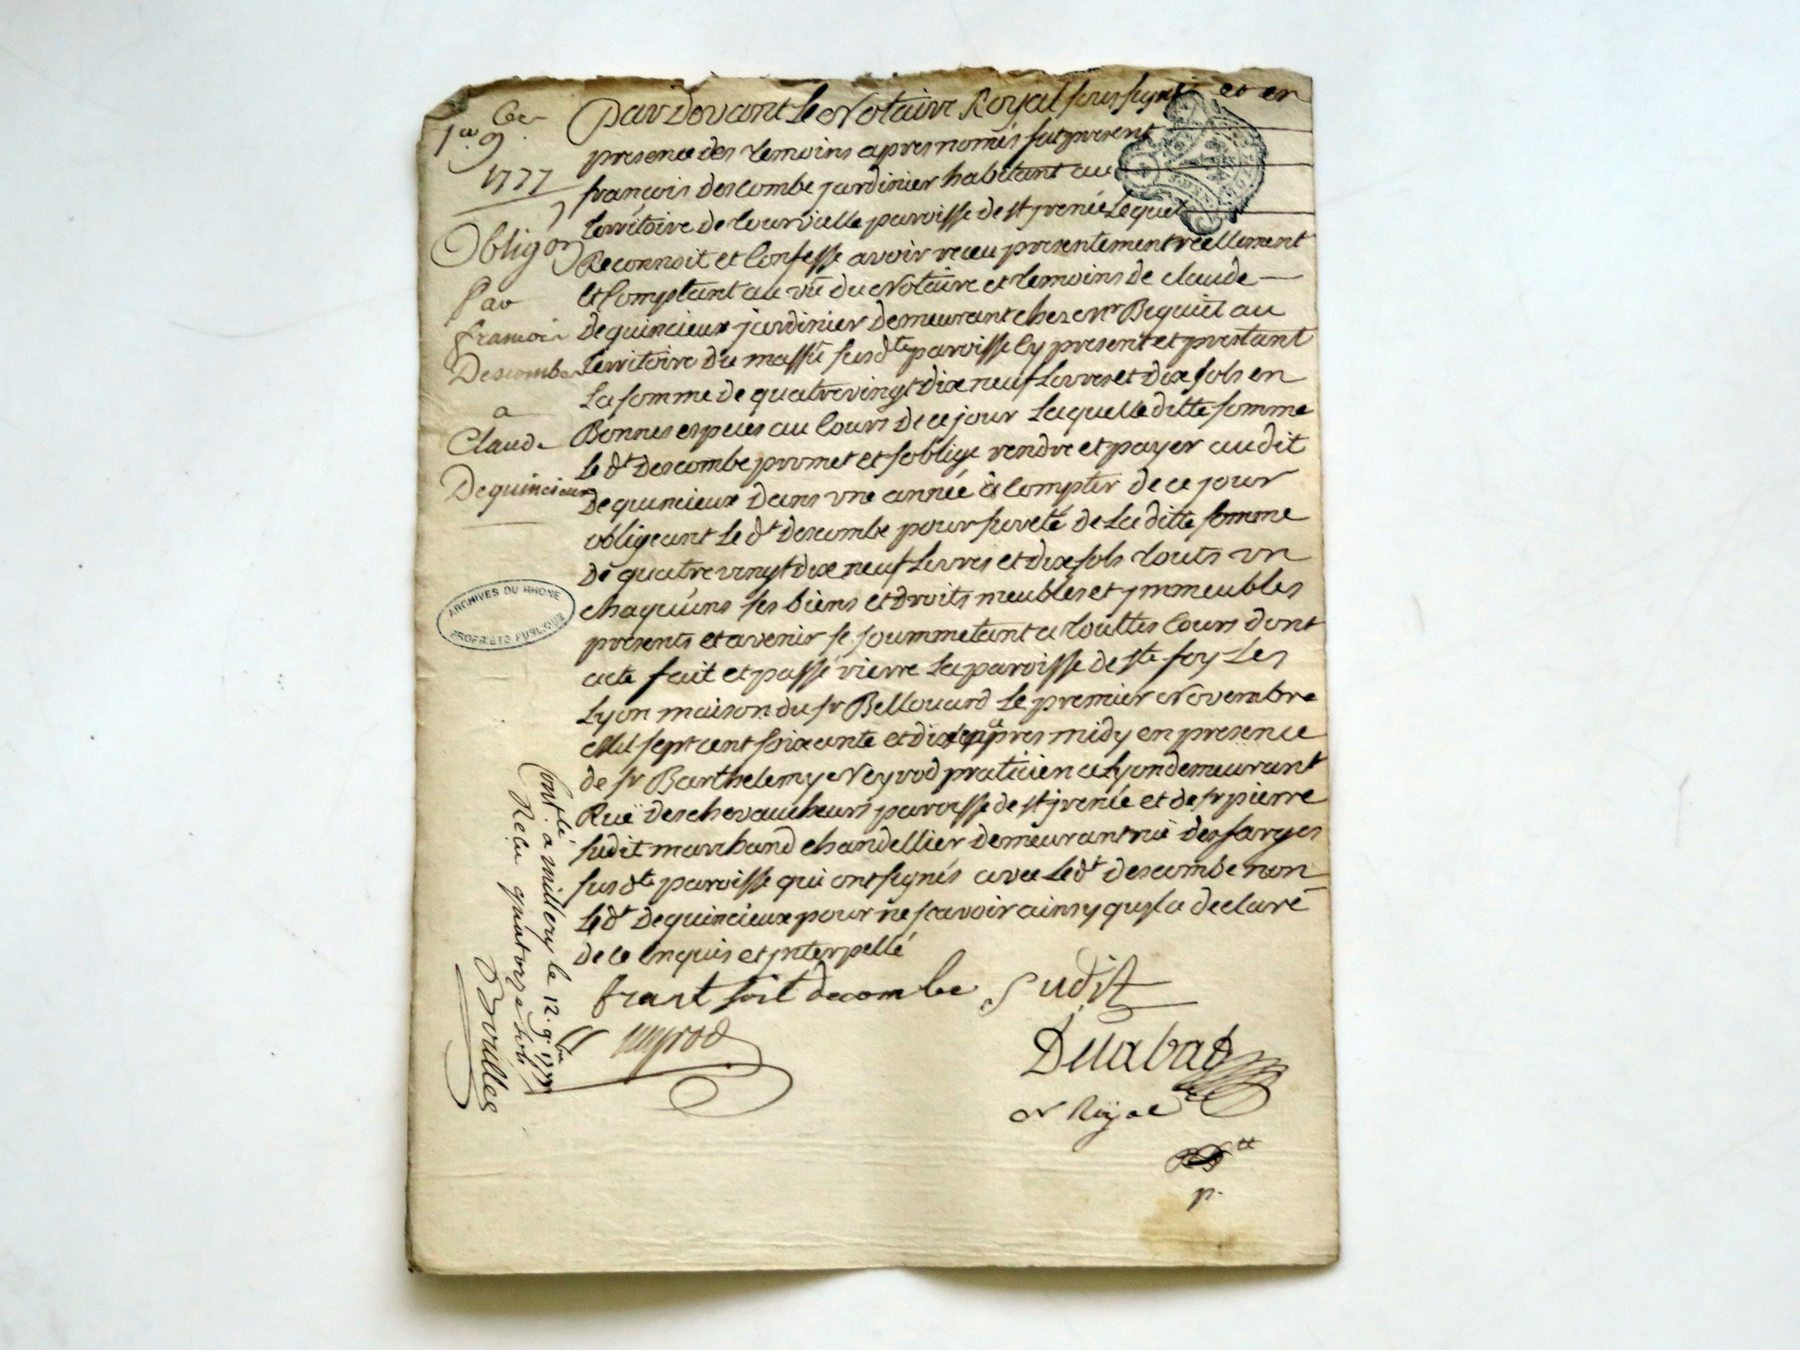 1er 9bre
1777
Obligon
Par
francois
Descombe
a
Claude
Dequincieux
Pardevant Le Notaire Royal soussigné et en
presence des temoins apres només fut present
françois descombe jardinier habitant au
territoire de tourvielle paroisse de st jrenée Lequel
Reconnoit et Confesse avoir receu presentement reellement
et Comptant au vû du Notaire et temoins de claude
Dequincieux jardinier Demeurant chez mr Bequil au
territoire du massû susdte paroisse Cy present et prestant
La somme de quatrevingt dix neuf Livres et dix sols en
Bonnes especes au Cours de ce jour Laquelle ditte somme
Le dt Descombe promet et soblige rendre et payer au dit
Dequincieux dans une année à Compter de ce jour
obligeant Le dt descombe pour sureté de La ditte somme
de quatre vingt dix neuf Livres et dix sols touts un
chaquuns ses biens et droits meubles et ymmeubles
presents et avenir se soummetant a touttes Cours dont
acte fait et passé rierre La paroisse de ste foy Les
Lyon maison du sr Bellouard Le premier Novembre
Mil sept cent soixante et dix sept apres midy en presence
de sr Barthelemy Neyrod praticien a Lyon demeurant
Ruë des chevaucheurs paroisse de st jrenée et de sr pierre
sudit marchand chandellier demeurant ruë des farges
susdte paroisse qui ont signés avec Le dt descombe non
Le dt Dequincieux pour ne scavoir ainsy qu'yl a declaré
de ce Enquis et ynterpellé
fransoit decombe Sudit
neyrod
Delabad
N Royal
p.
Contlé a millery le 12. 9bre 1777
Recu quatorze sols
ARCHIVES DU RHONE
PROPRIÉTÉ PUBLIQUE